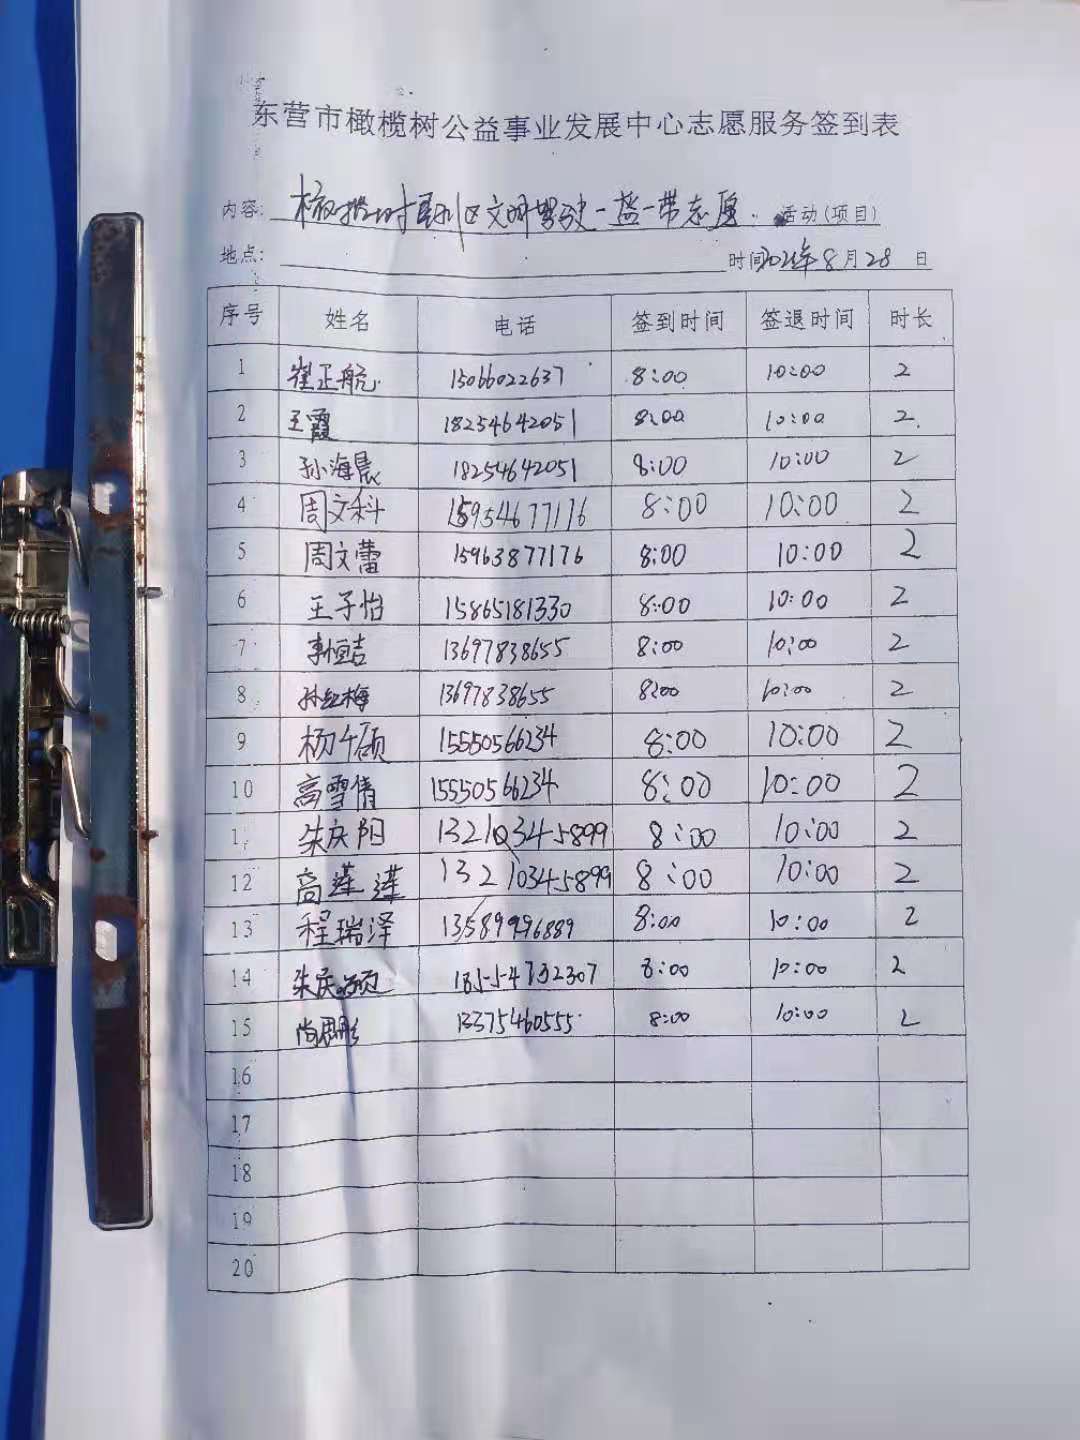 东营市橄榄树公益事业发展中心志愿服务签到表
内容: 橄榄树垦利区文明驾驶一盔一带志愿 活动(项目)
地点: 时间2021年8月28日
序号 姓名 电话 签到时间 签退时间 时长
1 崔正航 15066022637 8:00 10:00 2
2 王霞 18254642051 8:00 10:00 2
3 孙海晨 18254642051 8:00 10:00 2
4 周文科 15954677176 8:00 10:00 2
5 周文蕾 15963877176 8:00 10:00 2
6 王子怡 15865181330 8:00 10:00 2
7 李恒吉 13697838655 8:00 10:00 2
8 孙红梅 13697838655 8:00 10:00 2
9 杨千硕 15550566234 8:00 10:00 2
10 高雪倩 15550566234 8:00 10:00 2
1 朱庆阳 13210345899 8:00 10:00 2
12 高莲莲 13210345899 8:00 10:00 2
13 程瑞泽 13589996889 8:00 10:00 2
14 朱庆硕 18554732307 8:00 10:00 2
15 尚思彤 13375460555 8:00 10:00 2
16
17
18
19
20